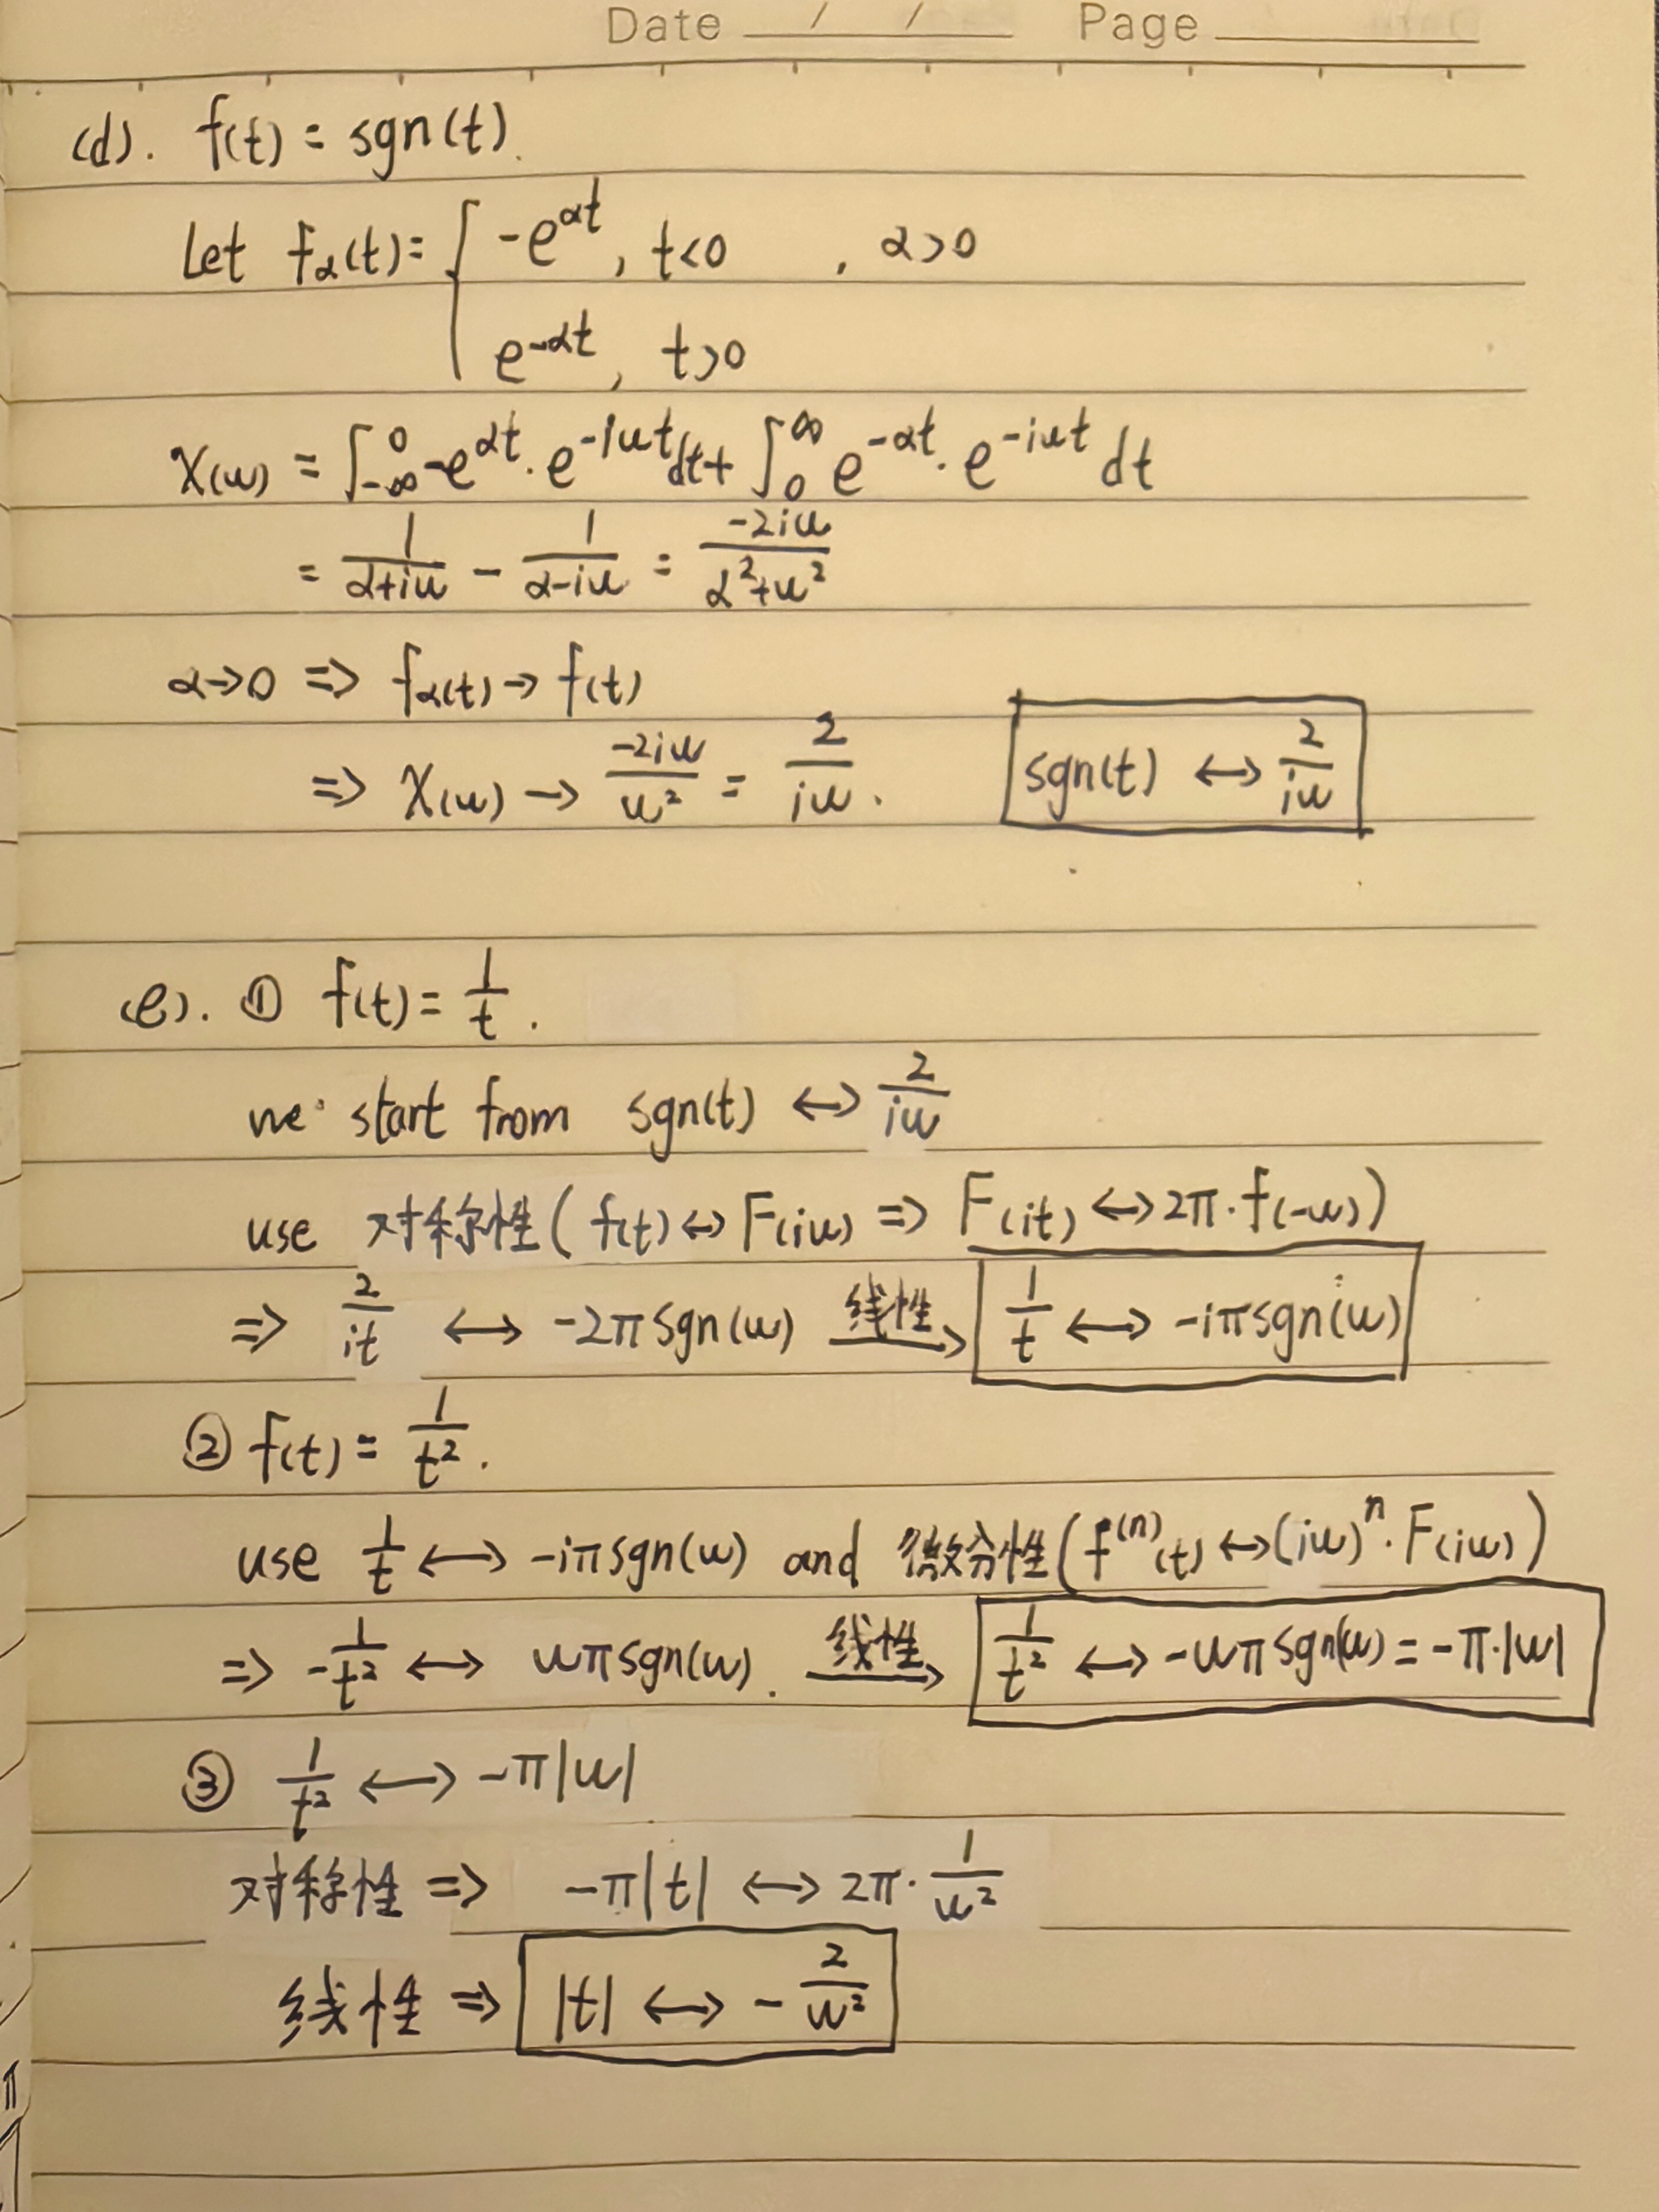 Date / / Page
(d). f(t) = sgn(t).
Let fα(t) = { -e^{αt}, t<0 , α>0
e^{-αt}, t>0
X(w) = ∫_{-∞}^{0} -e^{αt}·e^{-iwt}dt + ∫_{0}^{∞} e^{-αt}·e^{-iwt} dt
= 1/(α+iw) - 1/(α-iw) = -2iw/(α²+w²)
α→0 => fα(t) → f(t)
=> X(w) → -2iw/w² = 2/(iw). sgn(t) ↔ 2/(iw)
(e). ① f(t) = 1/t.
we start from sgn(t) ↔ 2/(iw)
use 对称性( f(t) ↔ F(iw) => F(it) ↔ 2π·f(-w) )
=> 2/(it) ↔ -2πsgn(w) 线性→ 1/t ↔ -iπsgn(w)
② f(t) = 1/t².
use 1/t ↔ -iπsgn(w) and 微分性( f^{(n)}(t) ↔ (iw)^n·F(iw) )
=> -1/t² ↔ wπsgn(w). 线性→ 1/t² ↔ -wπsgn(w) = -π·|w|
③ 1/t² ↔ -π|w|
对称性 => -π|t| ↔ 2π·1/w²
线性 => |t| ↔ -2/w²
π